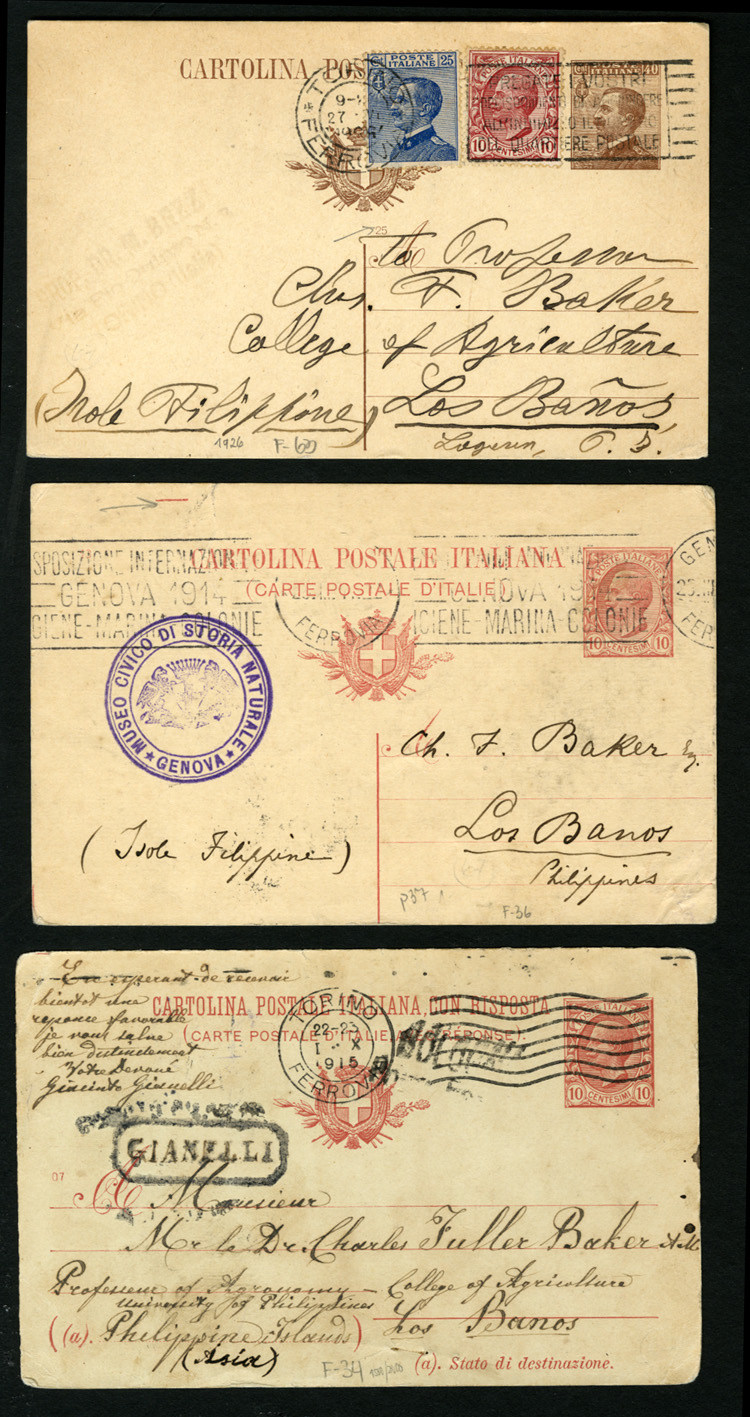 CARTOLINA POS
POSTE ITALIANE 25
POSTE ITALIANE
10 CENTESIMI 10
POSTE ITALIANE 40
TORINO
9-
27
FERROVIA
VOSTRI
IL QUARTIERE POSTALE
25
to Professor
Chas. F. Baker
College of Agriculture
(Isole Filippine) Los Baños
Laguna, P. I.
1926 F-60
CARTOLINA POSTALE ITALIANA
(CARTE POSTALE D'ITALIE)
SPOSIZIONE INTERNAZIO
GENOVA 1914
GIENE-MARINA-COLONIE
FERROVIA
GENOVA 1914
IGIENE-MARINA-COLONIE
POSTE ITALIANE
10 CENTESIMI 10
GEN
25.III
FER
MUSEO CIVICO DI STORIA NATURALE
★ GENOVA ★
Ch. F. Baker Eq.
Los Banos
(Isole Filippine)
Philippines
p37
F-36
En esperant de recevoir
bientot une
reponse favorable
je vous salue
bien distintement
Votre Devoué
Giacinto Gianelli
CARTOLINA POSTALE ITALIANA, CON RISPOSTA
(CARTE POSTALE D'ITALIE, RÉPONSE).
TORINO
22-23
1 X
1915
FERROVIA
BOLOGNA
POSTE ITALIANE
10 CENTESIMI 10
GIANELLI
07
A Monsieur
Mr le Dr. Charles Fuller Baker A.M.
Professeur of Agronomy - College of Agriculture
University of Philippines
((a). Philippine Islands) Los Banos
(Asia)
F-34
(a). Stato di destinazione.